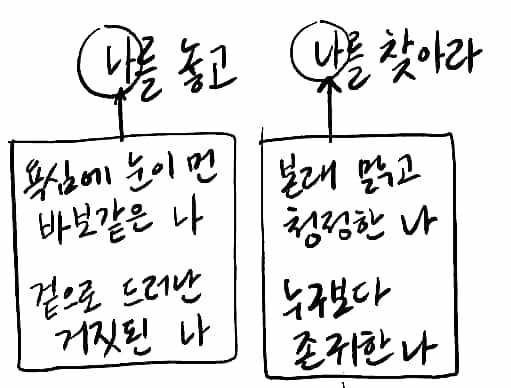 나를 놓고
나를 찾아라
욕심에 눈이 먼
바보같은 나
겉으로 드러난
거짓된 나
본래 맑고
청정한 나
누구보다
존귀한 나